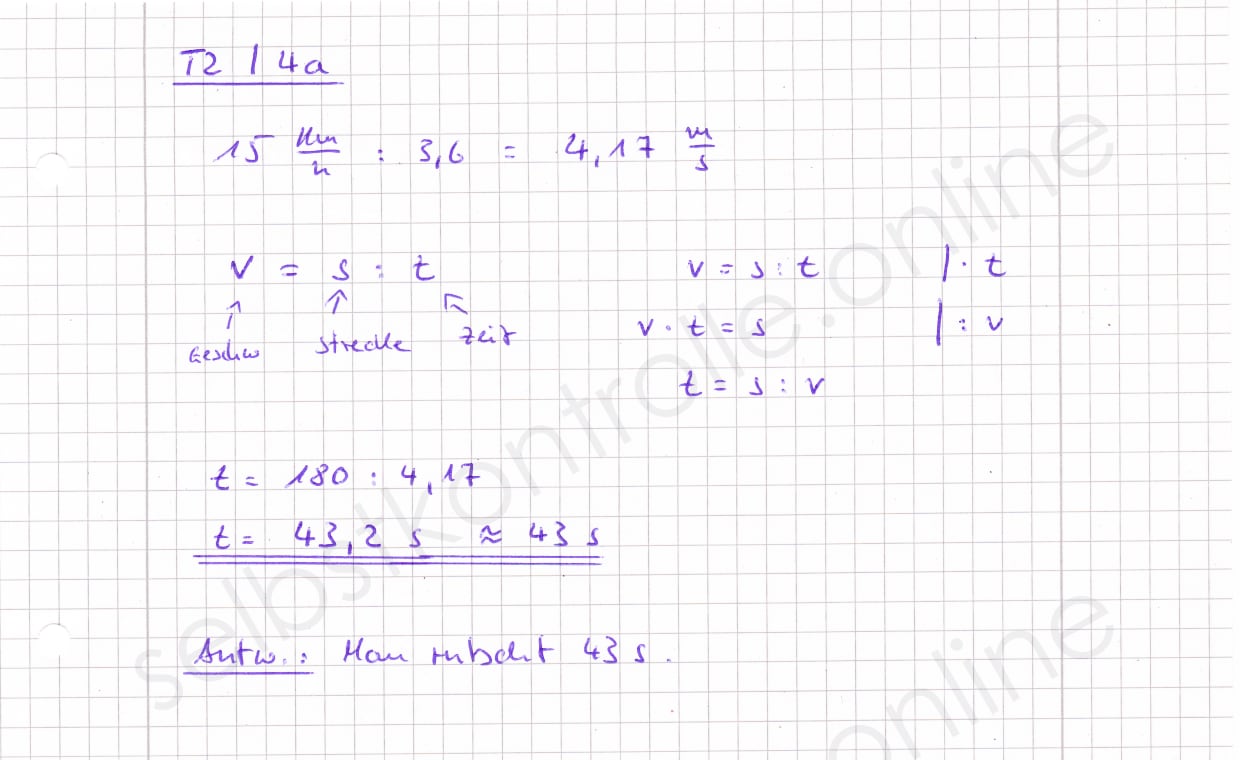 T2 / 4a
15 km/h : 3,6 = 4,17 m/s
v = s : t
Geschw Strecke Zeit
v = s : t | · t
v · t = s | : v
t = s : v
t = 180 : 4,17
t = 43,2 s ≈ 43 s
Antw.: Man rutscht 43 s.
selbstkontrolle.online
online